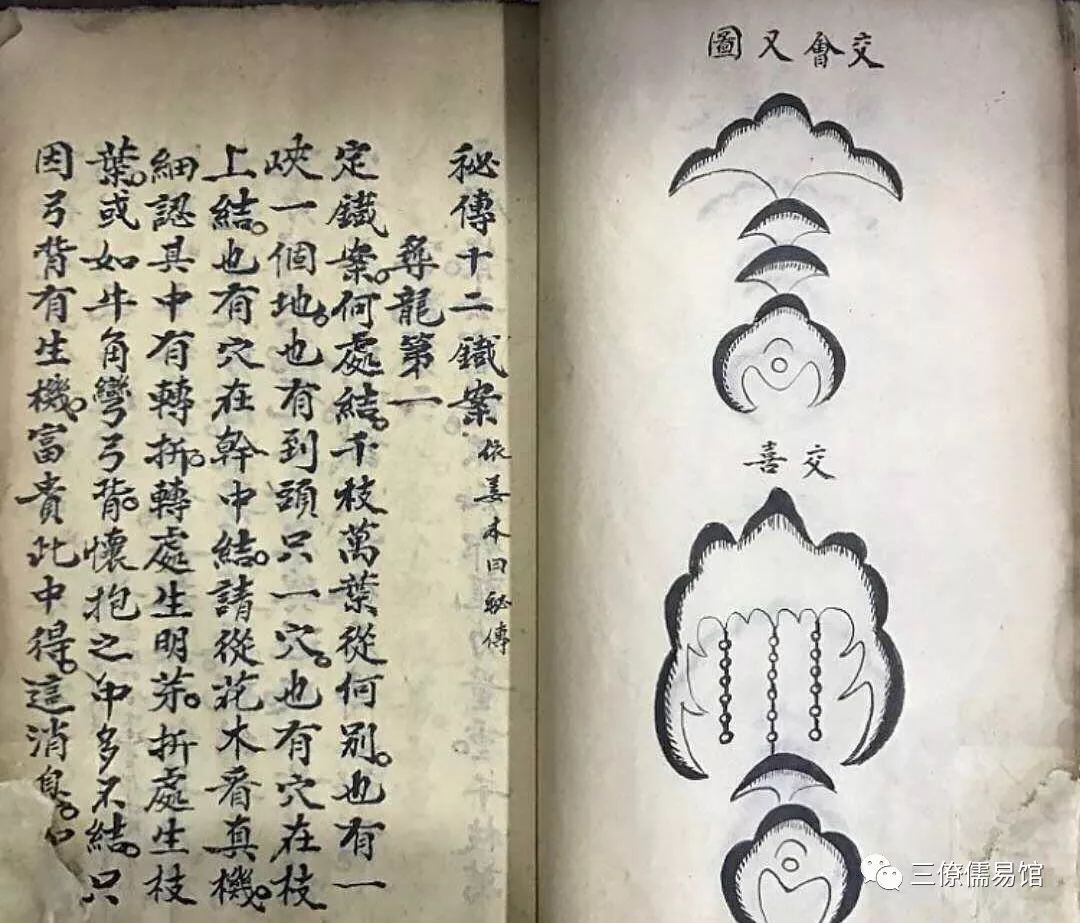 交會又圖
交喜
秘傳十二鐵案 依姜本曰秘傳
尋龍第一
定鐵案。何處結。千枝萬葉從何別。也有一
峽一個地。也有到頭只一穴。也有穴在枝
上結。也有穴在幹中結。請從花木看真機。
細認其中有轉折。轉處生明芽。折處生枝
葉。或如牛角彎弓背。懷抱之中多不結。只
因弓背有生機。富貴此中得。這消息。
三僚儒易馆